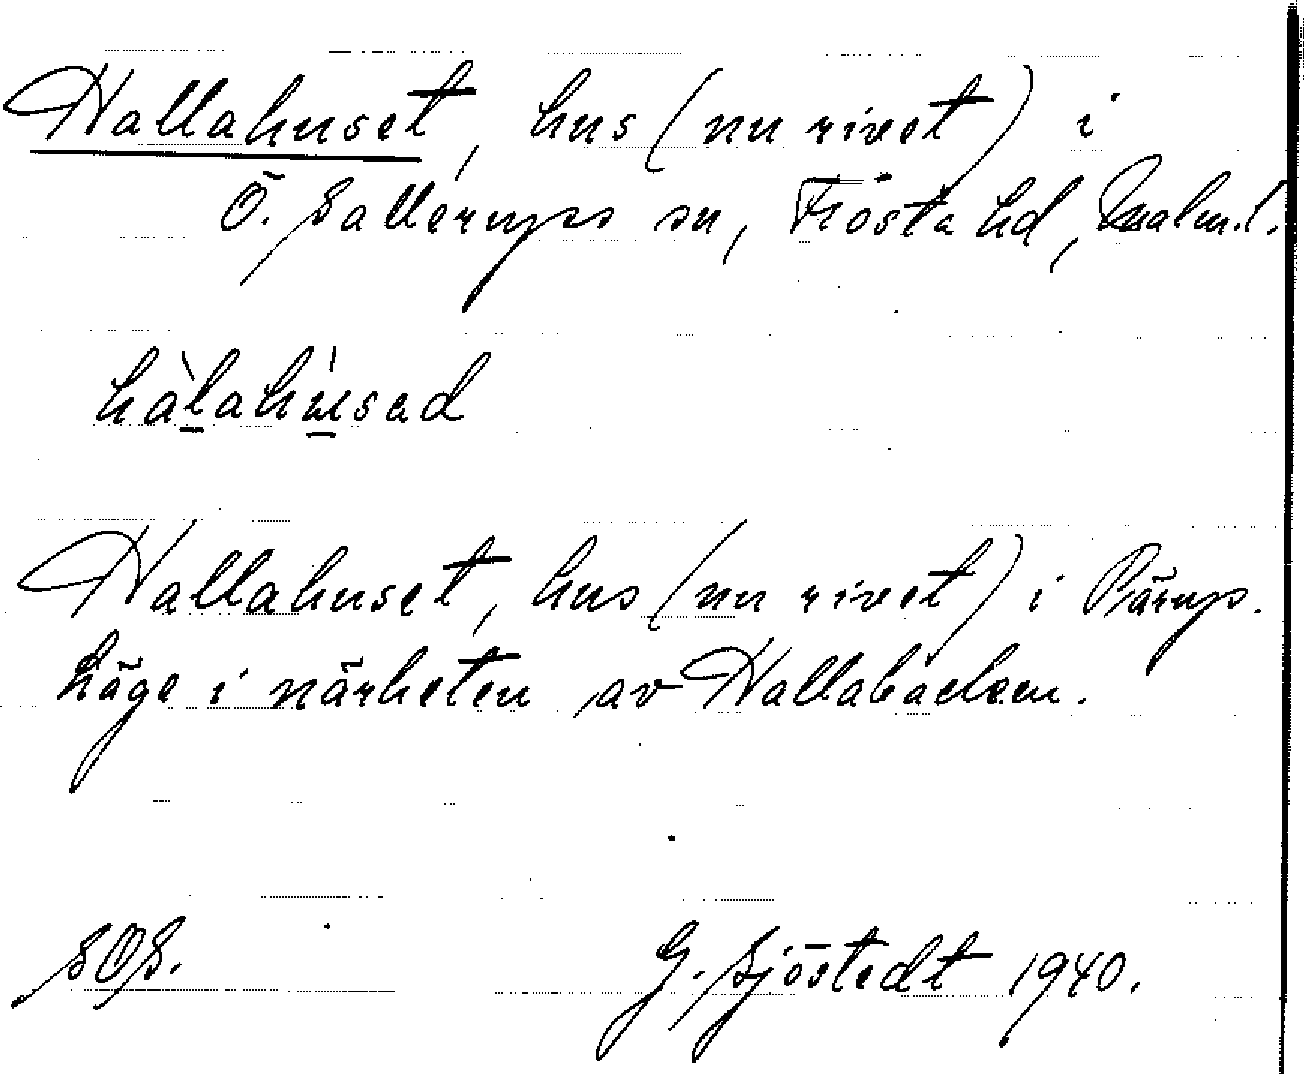 Hallahuset, hus (nu rivet) i
Ö. Sallerups sn, Frosta hd, Malm.l.
hàlahúsad
Hallahuset, hus (nu rivet) i Pärups.
häge i närheten av Hallabacken.
SOS. G. Sjöstedt 1940.